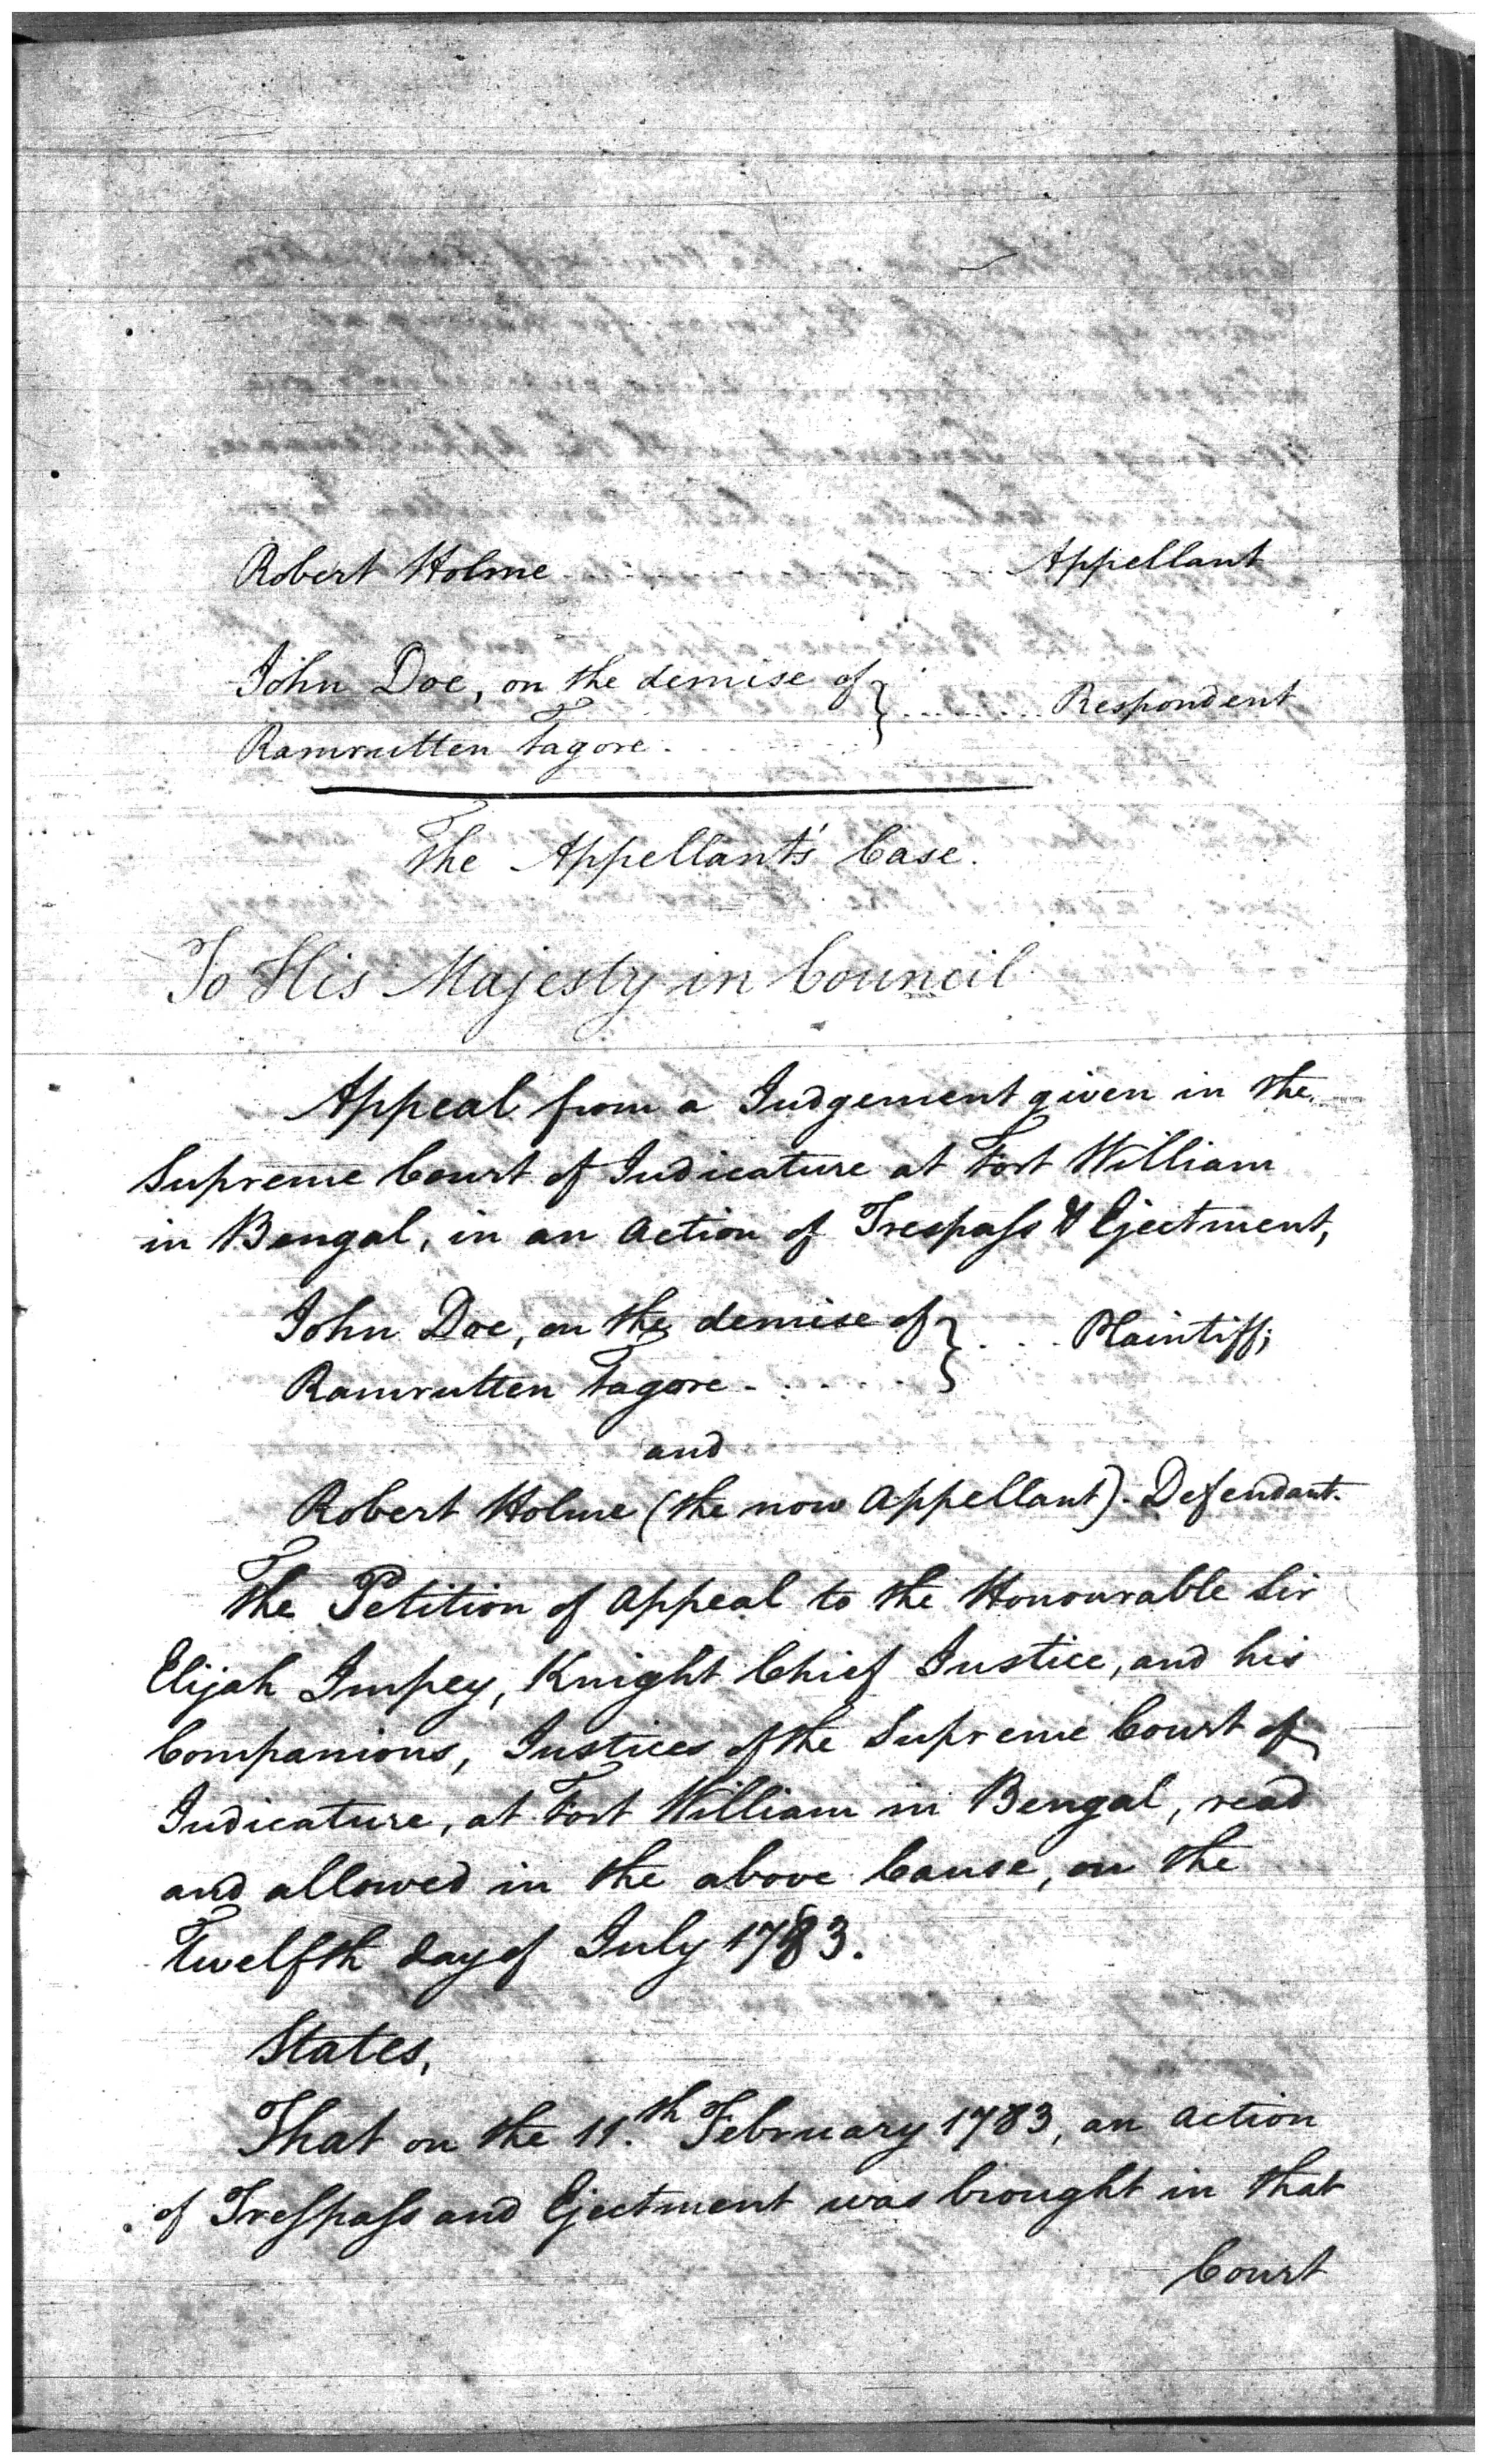 Robert Holme . . . . . . . . . . Appellant
John Doe, on the demise of } . . . . . . Respondent
Ramrutten Tagore . . . . . .
The Appellant's Case.
To His Majesty in Council
Appeal from a Judgement given in the
Supreme Court of Judicature at Fort William
in Bengal, in an Action of Trespass & Ejectment,
John Doe, on the demise of } . . . Plaintiff;
Ramrutten Tagore . . . . . .
and
Robert Holme (the now Appellant) . Defendant.
The Petition of Appeal to the Honourable Sir
Elijah Impey, Knight Chief Justice, and his
Companions, Justices of the Supreme Court of
Judicature, at Fort William in Bengal, read
and allowed in the above Cause, on the
Twelfth day of July 1783.
States,
That on the 11.th February 1783, an Action
of Trespass and Ejectment was brought in that
Court